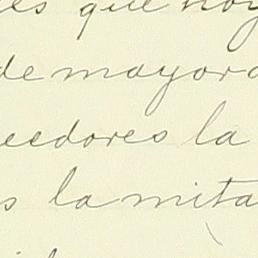 es que hoy
de mayora
eedores la
s la mita